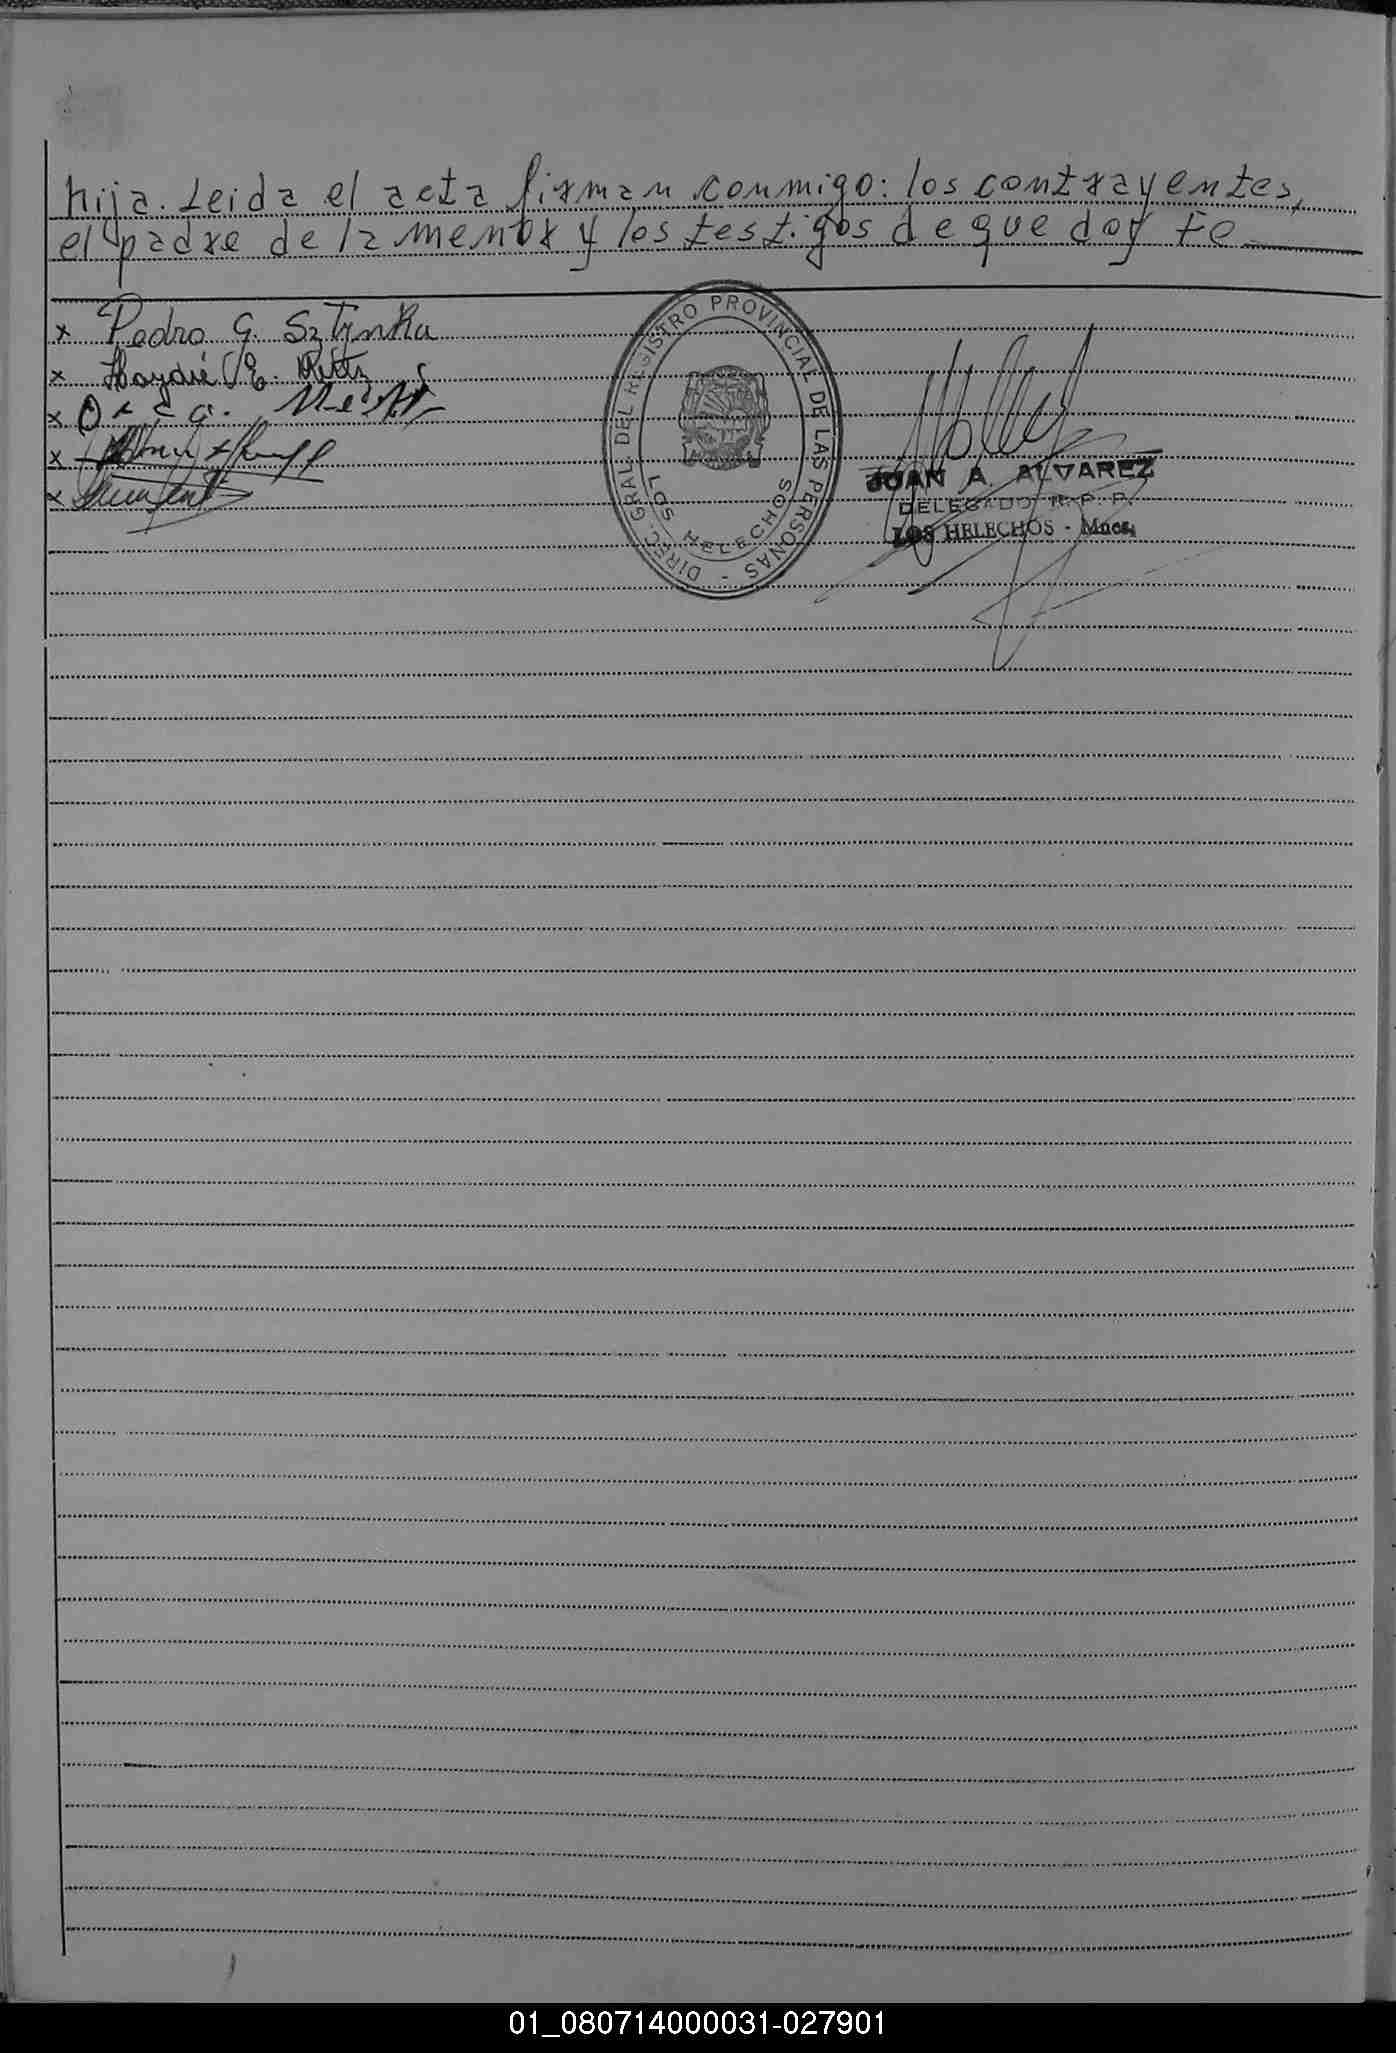 hija. Leida el acta firman conmigo: los contrayentes,
el padre de la menor y los testigos de que doy Fe
x Pedro G. Sztynka
x Haydée E.
x
x
x
DIREC. GRAL. DEL REGISTRO PROVINCIAL DE LAS PERSONAS -
LOS HELECHOS
JUAN A. ALVAREZ
DELEGADO R. P. P.
LOS HELECHOS - Mnes.
01_080714000031-027901